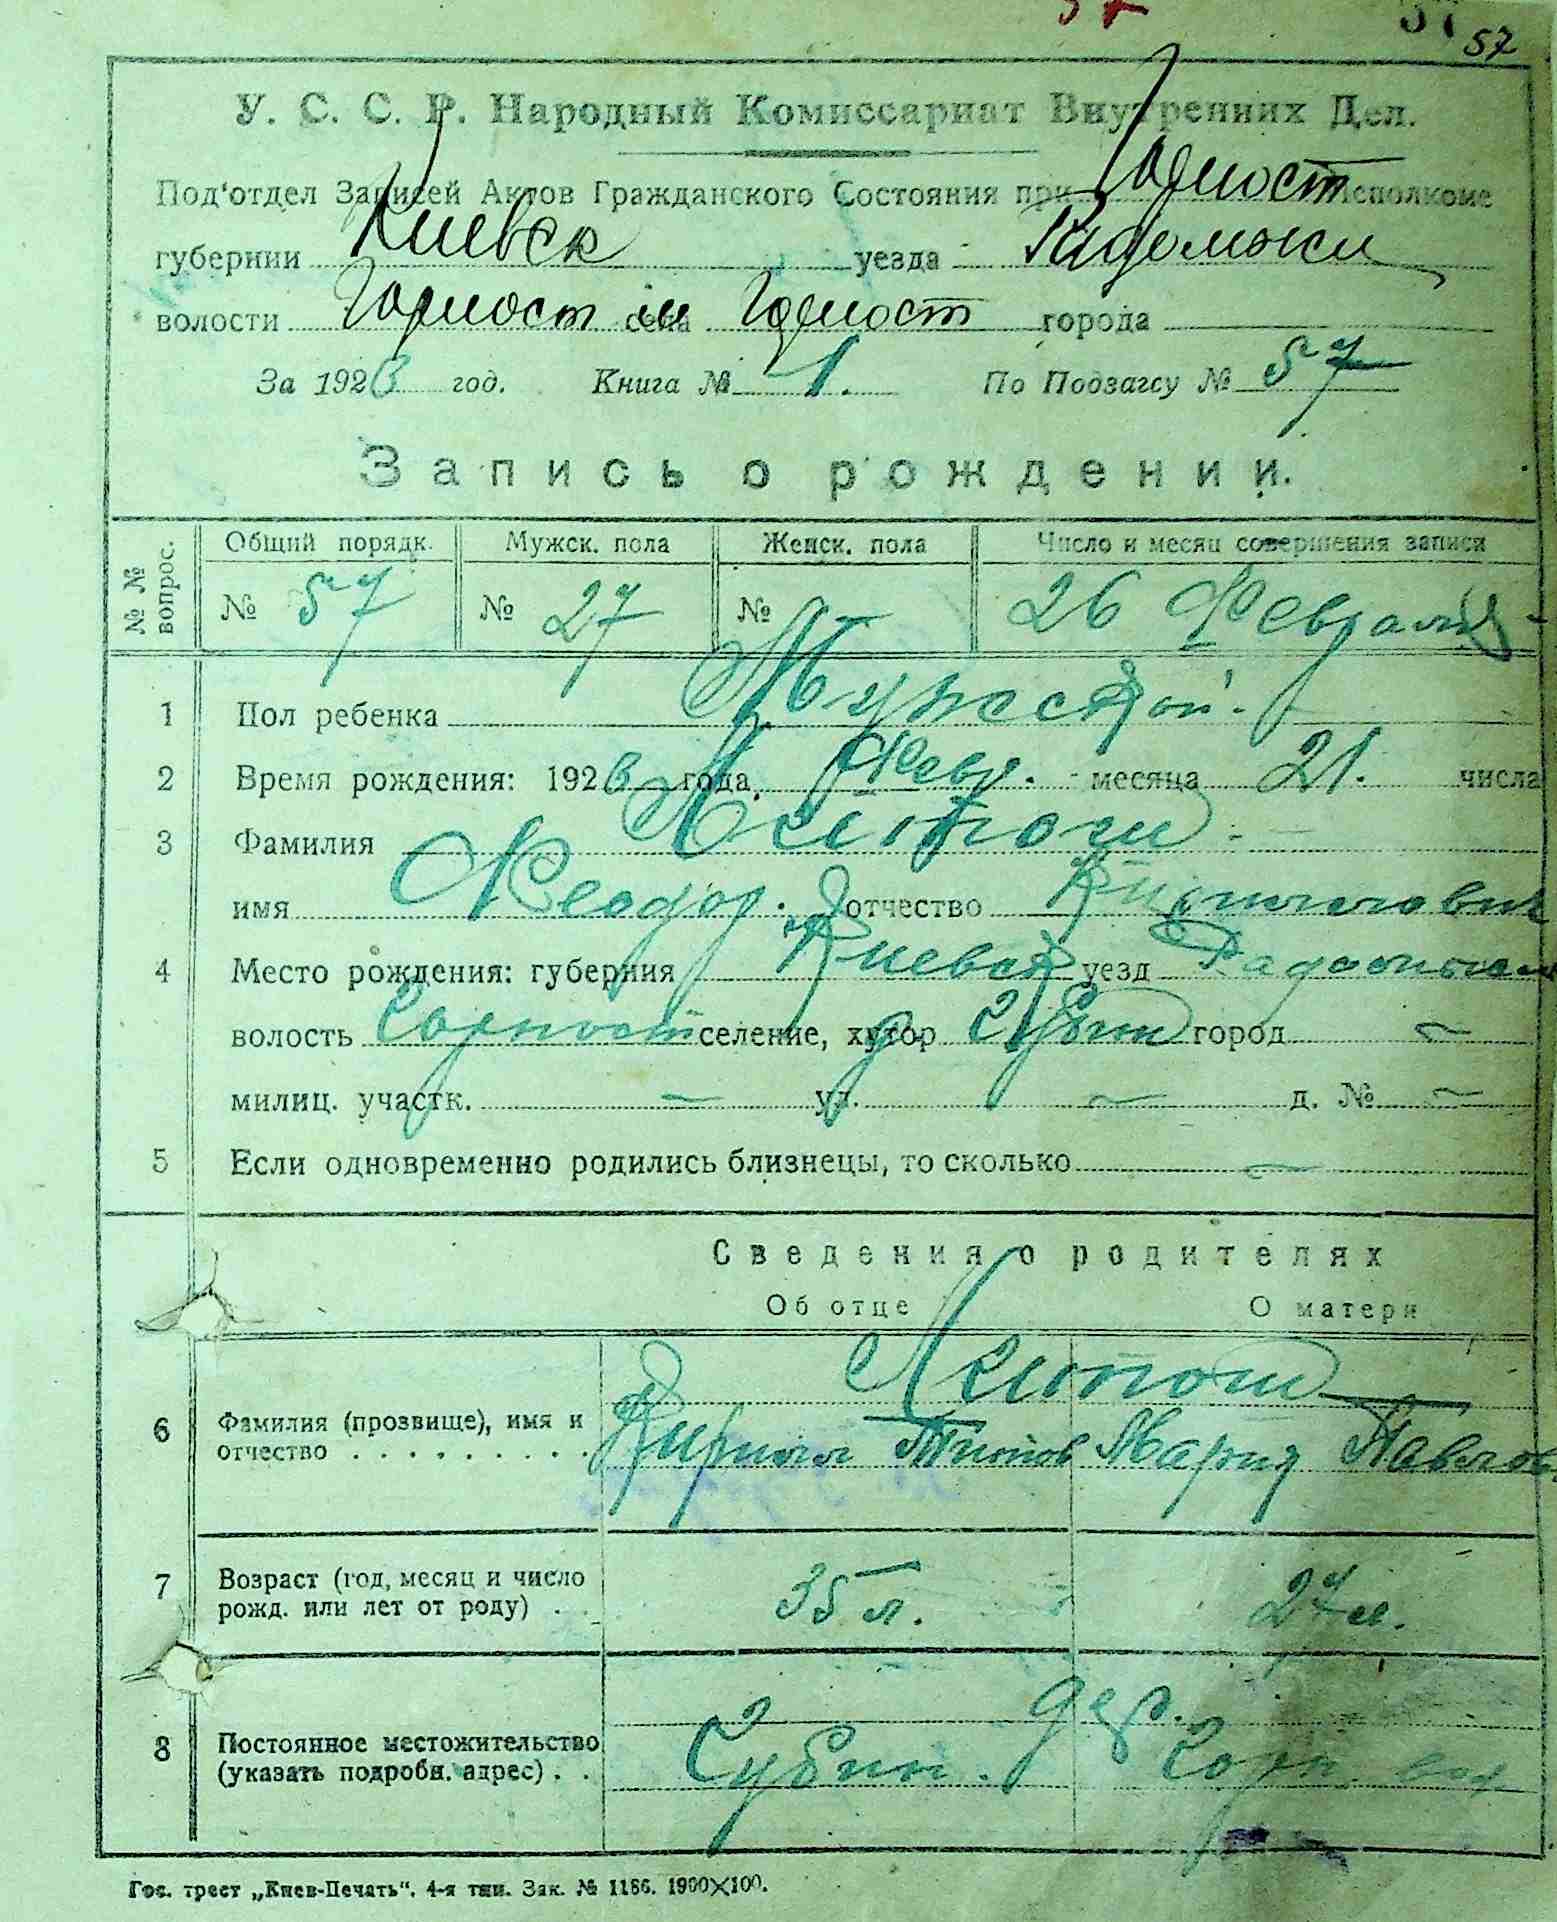 57
57
У. С. С. Р. Народный Комиссариат Внутренних Дел.
Под'отдел Записей Актов Гражданского Состояния при Горност Исполкоме
губернии Киевск уезда
волости Горност села Горност города
За 1923 год. Книга № 1. По Подзагсу № 57
Запись о рождении.
№ № вопрос. Общий порядк. Мужск. пола Женск. пола Число и месяц совершения записи
№ 57 № 27 № 26 Февраля
1 Пол ребенка Мужской.
2 Время рождения: 1923 года, Февр. месяца 21. числа
3 Фамилия
имя Феодор. отчество Кириллович
4 Место рождения: губерния Киевск уезд
волость Горност селение, хутор город —
милиц. участк. — ул. — д. № —
5 Если одновременно родились близнецы, то сколько —
Сведения о родителях
Об отце О матери
6 Фамилия (прозвище), имя и
отчество . . . . . . . . . Кирилл Титов Мария Павлов
7 Возраст (год, месяц и число
рожд. или лет от роду) . . 35 л. 27 л.
8 Постоянное местожительство
(указать подробн. адрес) . . дер. Горн. вол
Гос. трест „Киев-Печать“. 4-я тип. Зак. № 1186. 1900×100.